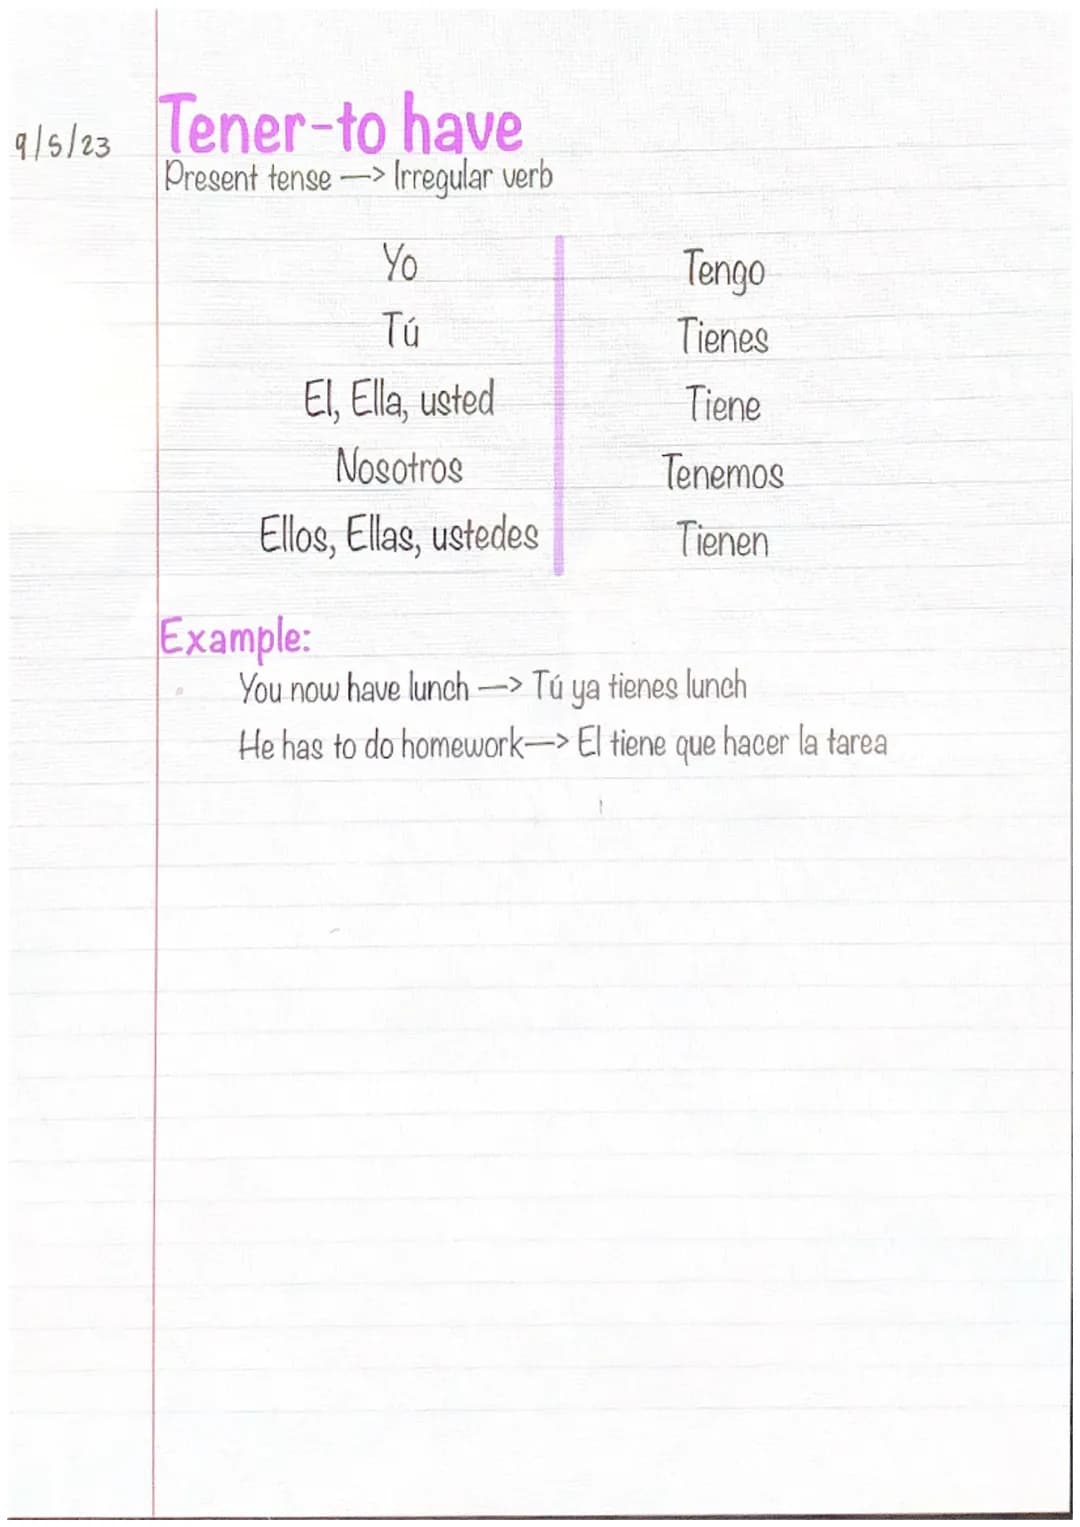 9/5/23
Tener-to have
Present tense —> Irregular verb
Yo Tengo
Tú Tienes
El, Ella, usted Tiene
Nosotros Tenemos
Ellos, Ellas, ustedes Tienen
Example:
You now have lunch —> Tú ya tienes lunch
He has to do homework—> El tiene que hacer la tarea